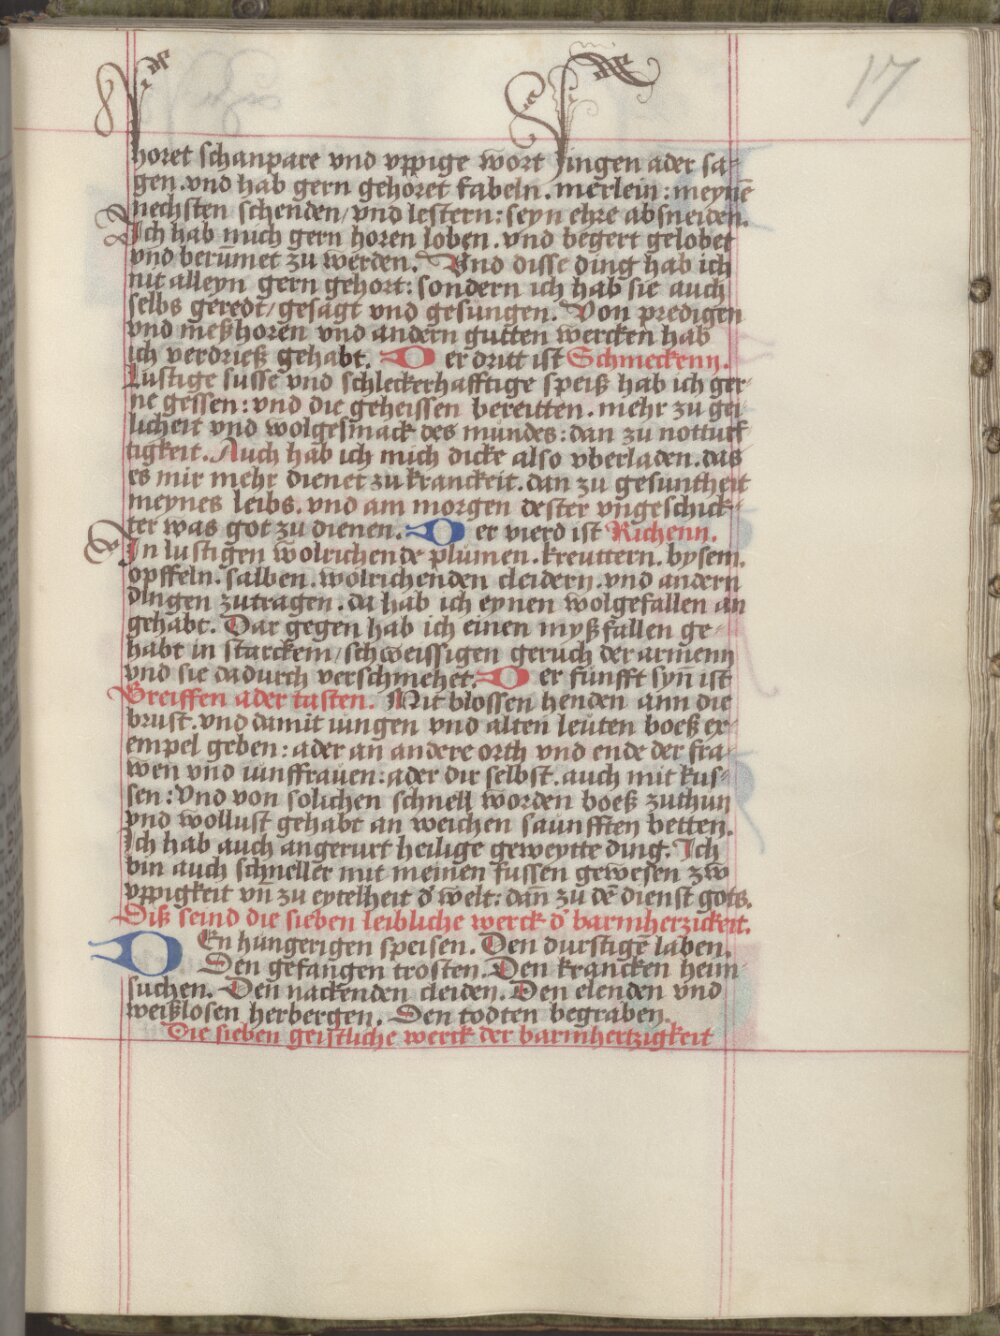 17
horet schanpare vnd vppige wort singen ader sa-
gen. vnd hab gern gehöret fabeln. merlein: meynē
nechsten schenden/ vnd lestern: seyn ehre absneiden.
Ich hab mich gern horen loben. vnd begert gelobet
vnd berumet zu werden. Vnd disse ding hab ich
nit alleyn gern gehort: sondern ich hab sie auch
selbs geredt/ gesagt vnd gesungen. Von predigen
vnd meßhoren vnd andern gutten wercken hab
ich verdrieß gehabt. Der dritt ist Schmeckenn.
Lustige susse vnd schleckerhafftige speiß hab ich ger-
ne gessen: vnd die geheissen bereitten. mehr zu gei-
licheit vnd wolgesmack des mundes: dan zu notturf-
tigkeit. Auch hab ich mich dicke also vberladen. das
es mir mehr dienet zu kranckeit. dan zu gesuntheit
meynes leibs. vnd am morgen dester vngeschick-
ter was got zu dienen. Der vierd ist Richenn.
In lustigen wolrichende plumen. kreuttern. bysem.
opffeln. salben. wolrichenden cleidern. vnd andern
dingen zutragen. da hab ich eynen wolgefallen an
gehabt. Dar gegen hab ich einen myßfallen ge-
habt in starckem/ schweissigen geruch der armenn
vnd sie dadurch verschmehet. Der funfft syn ist
Greiffen ader tasten. Mit blossen henden ann die
brust. vnd damit iungen vnd alten leuten boeß ex-
empel geben: ader an andere orth vnd ende der fra-
wen vnd iunffrauen: ader dir selbst. auch mit kus-
sen: Vnd von solichen schnell worden boeß zuthun
vnd wollust gehabt an weichen saunfften betten.
Ich hab auch angerurt heilige geweytte ding. Ich
bin auch schneller mit meinen fussen gewesen zw
vppigkeit vn̄ zu eytelheit d' welt: dan̄ zu dē dienst gots.
Diß seind die sieben leibliche werck d' barmherzickeit.
DEn hungerigen speisen. Den durstigē laben.
Den gefangen trosten. Den krancken heim
suchen. Den nackenden cleiden. Den elenden vnd
weißlosen herbergen. Den todten begraben.
Die sieben geistliche werck der barmhertzigkeit